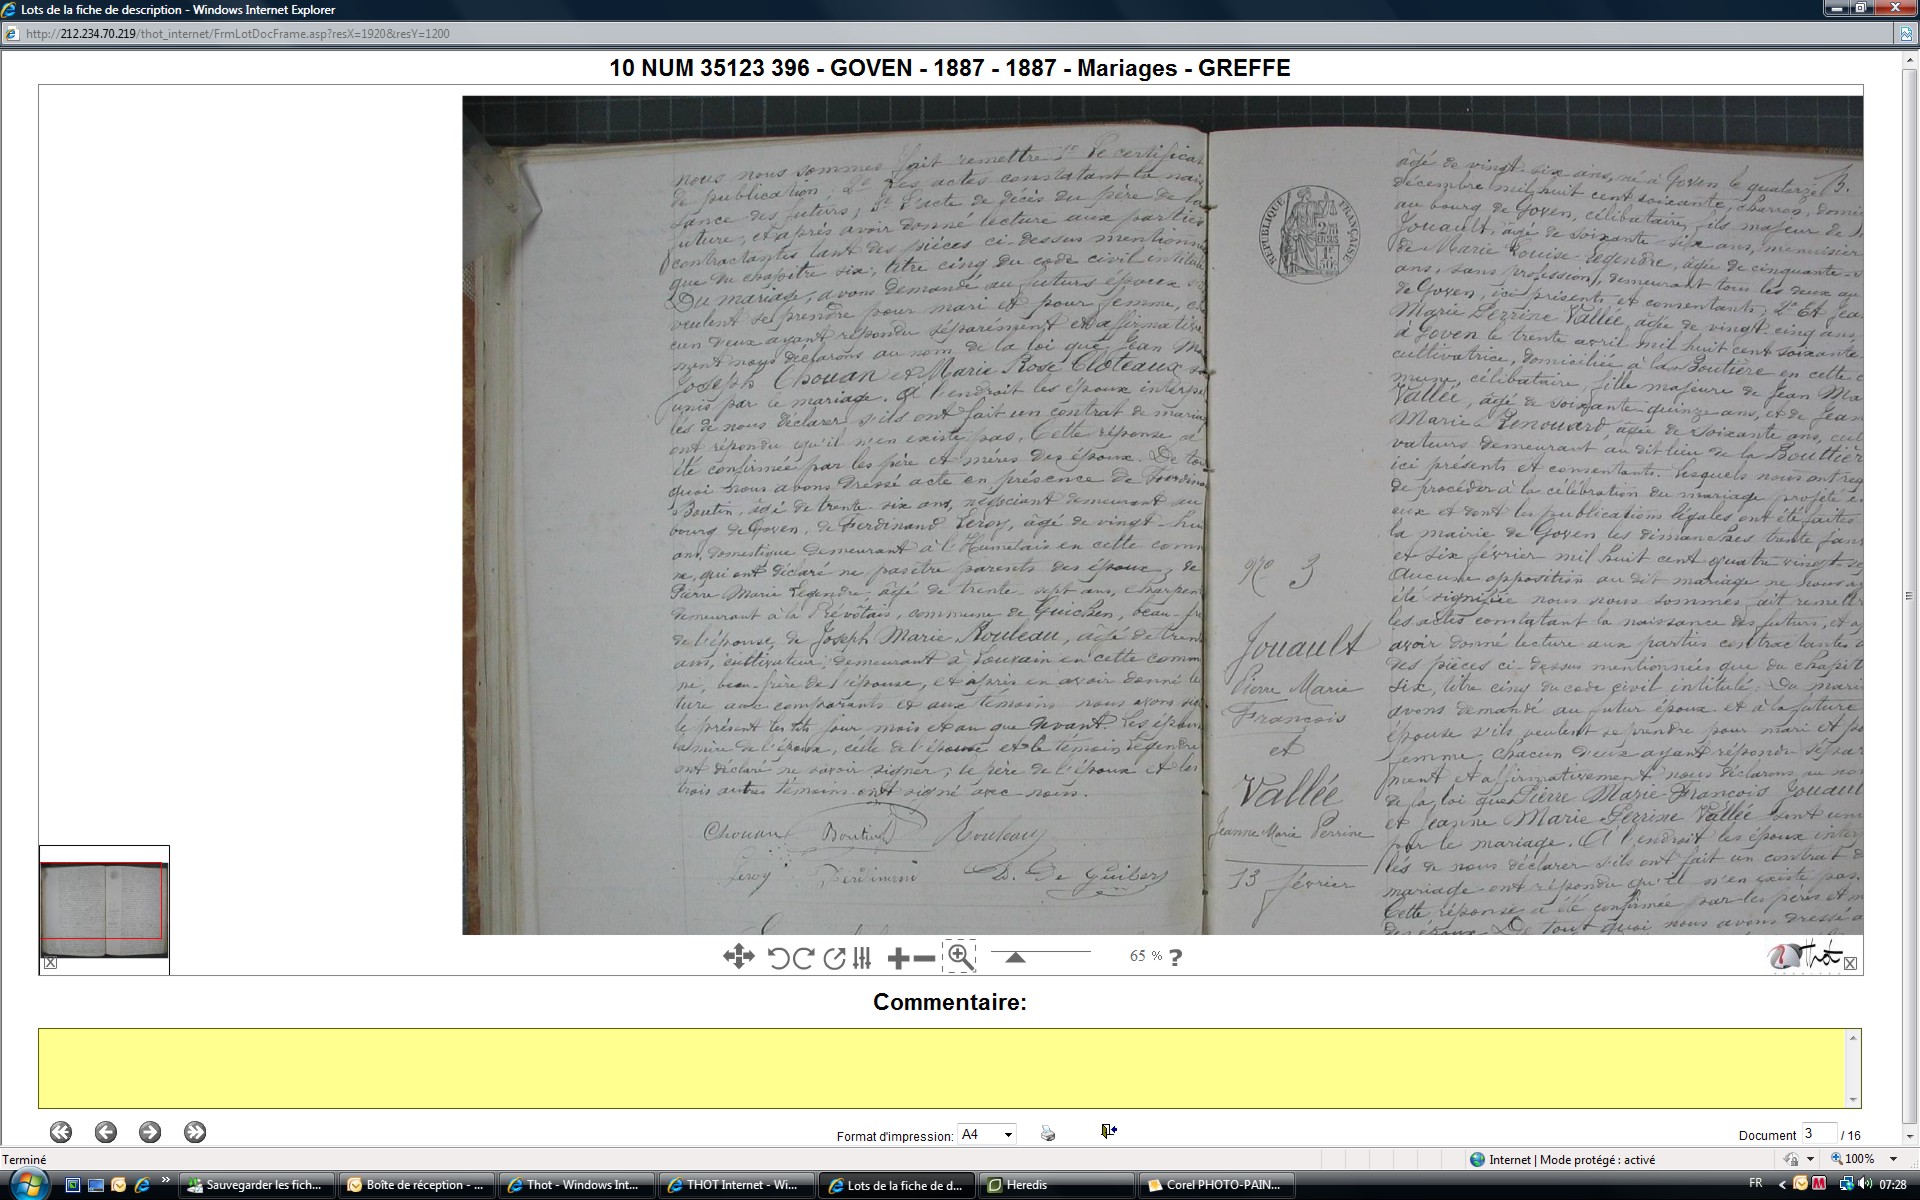 Lots de la fiche de description - Windows Internet Explorer
http://212.234.70.219/thot_internet/FrmLotDocFrame.asp?resX=1920&resY=1200
10 NUM 35123 396 - GOVEN - 1887 - 1887 - Mariages - GREFFE
nous nous sommes fait remettre 1º Le certificat
de publication; 2º Les actes constatant la nais
sance des futurs; 3º L'acte de décès du père de la
future, et après avoir donné lecture aux parties
contractantes tant des pièces ci-dessus mentionné
que du chapitre six, titre cinq du code civil intitulé
Du mariage, avons demandé au futurs époux s'ils
veulent se prendre pour mari et pour femme, cha
cun d'eux ayant répondu séparément et affirmative
ment nous déclarons au nom de la loi que Jean Ma
Joseph Chouan et Marie Rose Cloteaux so
unis par le mariage. A l'endroit les époux interpel
lés de nous déclarer s'ils ont fait un contrat de mariage
ont répondu qu'il n'en existe pas. Cette réponse a
été confirmée par les père et mères des époux. De tou
quoi nous avons dressé acte en présence de Ferdinan
Boutin, âgé de trente-six ans, négociant demeurant au
bourg de Goven, de Ferdinand Leroy, âgé de vingt-hui
ans, domestique demeurant à l'Humelais en cette comm
ne, qui ont déclaré ne pas être parents des époux; de
Pierre Marie Legendre, âgé de trente-sept ans, charpen
demeurant à la Prévôtais, commune de Guichen, beau-frè
de l'épouse, de Joseph Marie Rouleau, âgé de trente
ans, cultivateur, demeurant à Louvain en cette comm
ne, beau-frère de l'épouse, et après en avoir donné lec
ture aux comparants et aux témoins nous avons
le présent les dits jour mois et an que devant. Les époux
la mère de l'époux, celle de l'épouse et le témoin Legendre
ont déclaré ne savoir signer; le père de l'époux et les
trois autres témoins ont signé avec nous.
Chouan Boutin Rouleau
Leroy Ferdinand D. De Guibert
RÉPUBLIQUE FRANÇAISE
Nº 3
Jouault
Pierre Marie
François
et
Vallée
Jeanne Marie Perrine
13 février
âgé de vingt-six ans, né à Goven le quatorze 3.
décembre mil huit cent soixante, charron, domi
au bourg de Goven, célibataire, fils majeur de
Jouault, âgé de soixante-six ans, menuisier
de Marie Louise Legendre, âgée de cinquante-
ans, sans profession, demeurant tous les deux au
de Goven, ici présents et consentants; 2º Et Jea
Marie Perrine Vallée, âgée de vingt-cinq ans,
à Goven le trente avril mil huit cent soixante
cultivatrice, domiciliée à la Boutière en cette c
mune, célibataire, fille majeure de Jean Ma
Vallée, âgé de soixante-quinze ans, et de Jean
Marie Renouard, âgée de soixante ans, cul
vateurs demeurant au dit lieu de la Bouttièr
ici présents et consentants. Lesquels nous ont req
de procéder à la célébration du mariage projeté e
eux et dont les publications légales ont été faites
la mairie de Goven les dimanches trente jan
et six février mil huit cent quatre vingt-se
Aucune opposition au dit mariage ne nous ay
été signifiée nous nous sommes fait remettr
les actes constatant la naissance des futurs, et a
avoir donné lecture aux parties contractantes
des pièces ci-dessus mentionnées que du chapit
six, titre cinq du code civil intitulé: Du maria
avons demandé au futur époux et à la future
épouse s'ils veulent se prendre pour mari et po
femme, chacun d'eux ayant répondu séparé
ment et affirmativement nous déclarons au nom
de la loi que Pierre Marie François Jouault
et Jeanne Marie Perrine Vallée sont unis
par le mariage. A l'endroit les époux interp
lés de nous déclarer s'ils ont fait un contrat d
mariage ont répondu qu'il n'en existe pas.
Cette réponse a été confirmée par les pères et m
des époux. De tout quoi nous avons dressé a
65 % ?
Thot
Commentaire:
Format d'impression: A4
Document 3 / 16
Terminé
Internet | Mode protégé : activé
100%
Sauvegarder les fich...
Boîte de réception - ...
Thot - Windows Int...
THOT Internet - Wi...
Lots de la fiche de d...
Heredis
Corel PHOTO-PAIN...
FR
07:28